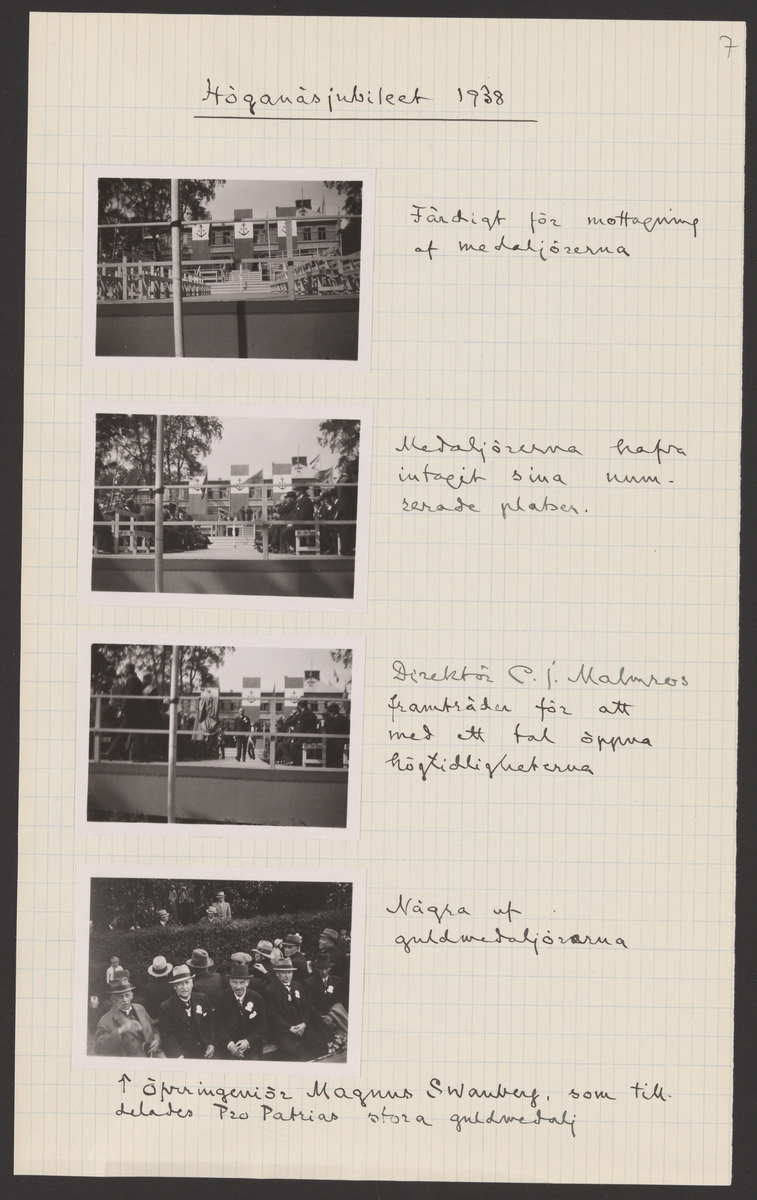 7
Höganäsjubileet 1938
Färdigt för mottagning
af medaljörerna
Medaljörerna hafva
intagit sina num-
rerade platser.
Direktör P. J. Malmros
framträder för att
med ett tal öppna
högtidligheterna
Några af
guldmedaljörerna
↑ Öfveringeniör Magnus Swanberg, som till-
delades Pro Patrias stora guldmedalj